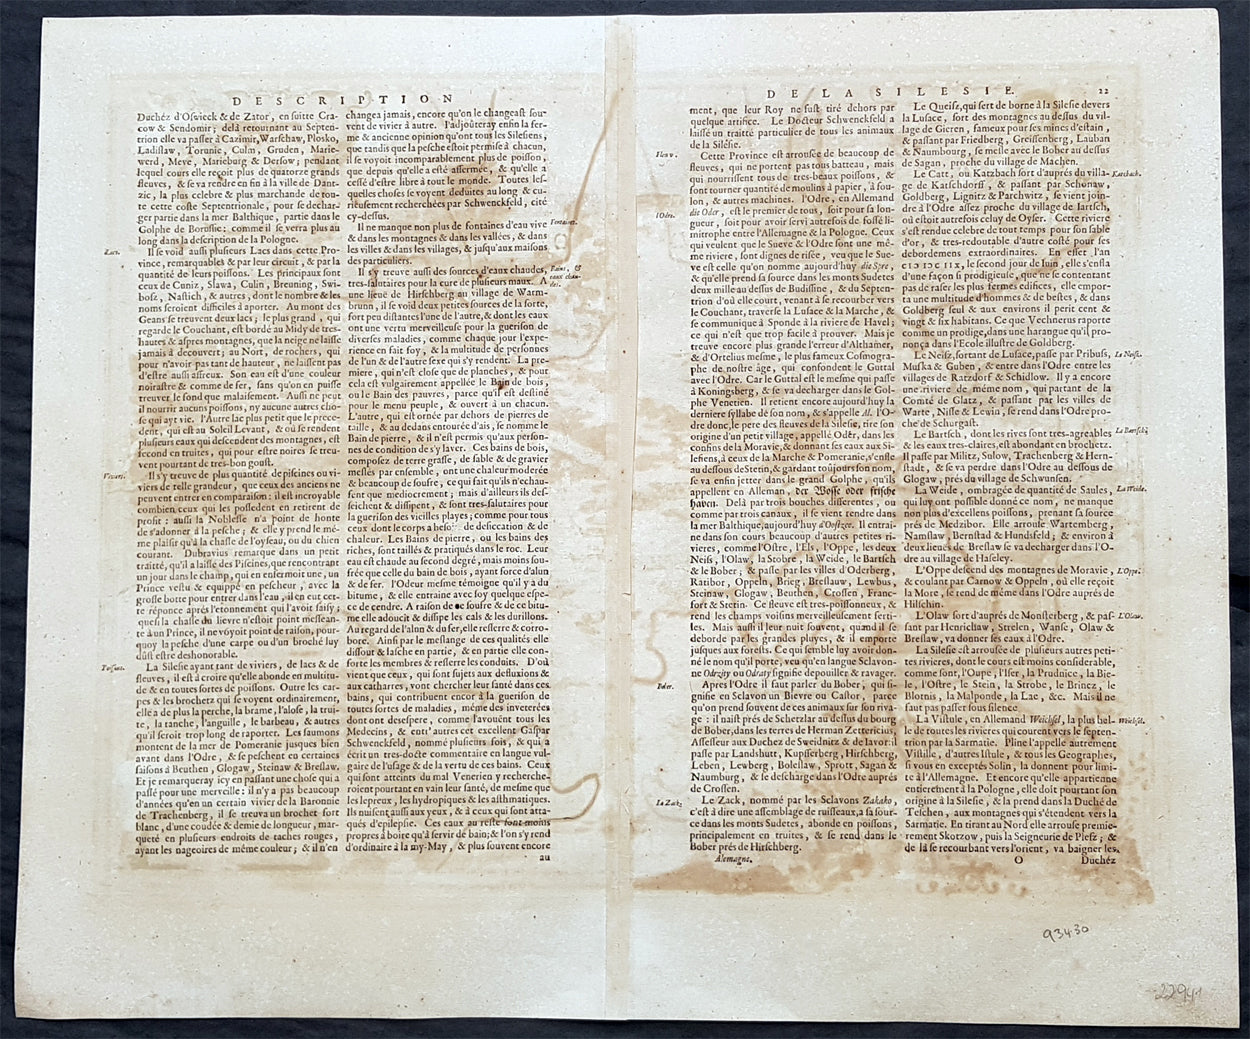 DESCRIPTION
Duchéz d'Oswieck & de Zator, en suitte Cra-
cow & Sendomir; delà retournant au Septen-
trion elle va passer à Cazimir, Warschaw, Plosko,
Ladislaw, Torunie, Culm, Gruden, Marie-
werd, Meve, Marieburg & Dersow; pendant
lequel cours elle reçoit plus de quatorze grands
fleuves, & se va rendre en fin à la ville de Dant-
zic, la plus celebre & plus marchande de tou-
te cette coste Septentrionale, pour se dechar-
ger partie dans la mer Balthique, partie dans le
Golphe de Borussie: comme il se verra plus au
long dans la description de la Pologne.
Lacs.
Il se void aussi plusieurs Lacs dans cette Pro-
vince, remarquables & par leur circuit, & par la
quantité de leurs poissons. Les principaux sont
ceux de Cuniz, Slawa, Culin, Breuning, Swi-
bosz, Nastich, & autres, dont le nombre & les
noms seroient difficiles à aporter. Au mont des
Geans se treuvent deux lacs; le plus grand, qui
regarde le Couchant, est bordé au Midy de tres-
hautes & aspres montagnes, que la neige ne laisse
jamais à decouvert; au Nort, de rochers, qui
pour n'avoir pas tant de hauteur, ne laissent pas
d'estre aussi affreux. Son eau est d'une couleur
noirastre & comme de fer, sans qu'on en puisse
treuver le fond que malaisement. Aussi ne peut
il nourrir aucuns poissons, ny aucune autres cho-
se qui ayt vie. l'Autre lac plus petit que le prece-
dent, qui est au Soleil Levant, & où se rendent
plusieurs eaux qui descendent des montagnes, est
fecond en truites, qui pour estre noires se treu-
vent pourtant de tres-bon goust.
Viviers.
Il s'y treuve de plus quantité de piscines ou vi-
viers de telle grandeur, que ceux des anciens ne
peuvent entrer en comparaison: il est incroyable
combien ceux qui les possedent en retirent de
profit: aussi la Noblesse n'a point de honte
de s'adonner à la pesche; & elle y prend le mé-
me plaisir qu'à la chasse de l'oyseau, ou du chien
courant. Dubravius remarque dans un petit
traitté, qu'il a laissé des Piscines, que rencontrant
un jour dans le champ, qui en enfermoit une, un
Prince vestu & equippé en pescheur, avec la
grosse botte pour entrer dans l'eau; il en eut cet-
te réponce après l'etonnement qui l'avoit saisy;
que si la chasse du lievre n'estoit point messean-
te à un Prince, il ne voyoit point de raison, pour-
quoy la pesche d'une carpe ou d'un broché luy
dûst estre deshonorable.
Poissons.
La Silesie ayant tant de viviers, de lacs & de
fleuves, il est à croire qu'elle abonde en multitu-
de & en toutes sortes de poissons. Outre les car-
pes & les brochetz qui se voyent ordinairement,
elle a de plus la perche, la brame, l'alose, la trui-
te, la tanche, l'anguille, le barbeau, & autres
qu'il seroit trop long de raporter. Les saumons
montent de la mer de Pomeranie jusques bien
avant dans l'Odre, & se peschent en certaines
saisons à Beuthen, Glogaw, Steinaw & Breslaw.
Et je remarqueray icy en passant une chose qui a
passé pour une merveille: il n'y a pas beaucoup
d'années qu'en un certain vivier de la Baronnie
de Trachenberg, il se treuva un brochet fort
blanc, d'une coudée & demie de longueur, mar-
queté en plusieurs endroits de taches rouges,
ayant les nageoires de même couleur; & il n'en
changea jamais, encore qu'on le changeast sou-
vent de vivier à autre. J'adjoûteray enfin la fer-
me & ancienne opinion qu'ont tous les Silesiens,
que tandis que la pesche estoit permise à chacun,
il se voyoit incomparablement plus de poisson,
que depuis qu'elle a esté affermée, & qu'elle a
cessé d'estre libre à tout le monde. Toutes les-
quelles choses se voyent deduites au long & cu-
rieusement recherchées par Schwenckfeld, cité
cy-dessus.
Fontaines.
Il ne manque non plus de fontaines d'eau vive
& dans les montagnes & dans les vallées, & dans
les villes & dans les villages, & jusqu'aux maisons
des particuliers.
Bains, &
eaux chau-
des.
Il s'y treuve aussi des sources d'eaux chaudes,
tres-salutaires pour la cure de plusieurs maux. A
une lieuë de Hirschberg au village de Warm-
brunn, il se void deux petites sources de la sorte,
fort peu distantes l'une de l'autre, & dont les eaux
ont une vertu merveilleuse pour la guerison de
diverses maladies, comme chaque jour l'expe-
rience en fait foy, & la multitude de personnes
de l'un & de l'autre sexe qui s'y rendent. La pre-
miere, qui n'est close que de planches, & pour
cela est vulgairement appellée le Bain de bois,
ou le Bain des pauvres, parce qu'il est destiné
pour le menu peuple, & ouvert à un chacun.
L'autre, qui est ornée par dehors de pierres de
taille, & au dedans entourée d'ais, se nomme le
Bain de pierre, & il n'est permis qu'aux person-
nes de condition de s'y laver. Ces bains de bois,
composez de terre grasse, de sable & de gravier
meslés par ensemble, ont une chaleur moderée
& beaucoup de soufre, ce qui fait qu'ils n'echau-
fent que mediocrement; mais d'ailleurs ils des-
seichent & dissipent, & sont tres-salutaires pour
la guerison des vieilles playes; comme pour tous
ceux dont le corps a besoin de desiccation & de
chaleur. Les Bains de pierre, ou les bains des
riches, sont taillés & pratiqués dans le roc. Leur
eau est chaude au second degré, mais moins sou-
frée que celle du bain de bois, ayant force d'alun
& de fer. l'Odeur mesme témoigne qu'il y a du
bitume, & elle entraine avec soy quelque espe-
ce de cendre. A raison de ce soufre & de ce bitu-
me elle adoucit & dissipe les cals & les durillons.
Au regard de l'alun & du fer, elle resserre & corro-
bore. Ainsi par le meslange de ces qualités elle
dissout & lasche en partie, & en partie elle con-
forte les membres & resserre les conduits. D'où
vient que ceux, qui sont sujets aux defluxions &
aux catharres, vont chercher leur santé dans ces
bains, qui contribuent encor à la guerison de
toutes sortes de maladies, même des inveterées
dont ont desesperé, comme l'avouënt tous les
Medecins, & entr'autres cet excellent Gaspar
Schwenckfeld, nommé plusieurs fois, & qui a
écrit un tres-docte commentaire en langue vul-
gaire de l'usage & de la vertu de ces bains. Ceux
qui sont atteints du mal Venerien y recherche-
roient pourtant en vain leur santé, de mesme que
les lepreux, les hydropiques & les asthmatiques.
Ils nuisent aussi aux yeux, & à ceux qui sont atta-
qués d'epilepsie. Ces eaux au reste sont moins
propres à boire qu'à servir de bain; & l'on s'y rend
d'ordinaire à la my-May, & plus souvent encore
au
DE LA SILESIE.
22
ment, que leur Roy ne fust tiré dehors par
quelque artifice. Le Docteur Schwenckfeld a
laissé un traitté particulier de tous les animaux
de la Silesie.
Fleuv.
Cette Province est arrousée de beaucoup de
fleuves, qui ne portent pas tous batteau, mais
qui nourrissent tous de tres-beaux poissons, &
font tourner quantité de moulins à papier, à fou-
lon, & autres machines. l'Odre, en Allemand
l'Odre.
die Oder, est le premier de tous, soit pour sa lon-
gueur, soit pour avoir servi autrefois de fossé li-
mitrophe entre l'Allemagne & la Pologne. Ceux
qui veulent que le Sueve & l'Odre sont une mé-
me riviere, sont dignes de risée, veu que le Sue-
ve est celle qu'on nomme aujourd'huy die Spre,
& qu'elle prend sa source dans les monts Sudetes
deux mille au dessus de Budissine, & du Septen-
trion d'où elle court, venant à se recourber vers
le Couchant, traverse la Lusace & la Marche, &
se communique à Sponde à la riviere de Havel;
ce qui n'est que trop facile à prouver. Mais je
treuve encore plus grande l'erreur d'Althamer,
& d'Ortelius mesme, le plus fameux Cosmogra-
phe de nostre âge, qui confondent le Guttal
avec l'Odre. Car le Guttal est le mesme qui passe
à Koningsberg, & se va decharger dans le Gol-
phe Venetien. Il retient encore aujourd'huy la
derniere syllabe de son nom, & s'appelle Al. l'O-
dre donc, le pere des fleuves de la Silesie, tire son
origine d'un petit village, appellé Odér, dans les
confins de la Moravie, & donnant ses eaux aux Si-
lesiens, à ceux de la Marche & Pomeranie, s'enfle
au dessous de Stetin, & gardant toûjours son nom,
se va enfin jetter dans le grand Golphe, qu'ils
appellent en Alleman, der Grosse oder frische
haven. Delà par trois bouches differentes, ou
comme par trois canaux, il se vient rendre dans
la mer Balthique, aujourd'huy d'Oostzee. Il entrai-
ne dans son cours beaucoup d'autres petites ri-
vieres, comme l'Ostre, l'Els, l'Oppe, les deux
Neiss, l'Olaw, la Stobre, la Weide, le Bartsch
& le Bober; & passe par les villes d'Oderberg,
Ratibor, Oppeln, Brieg, Breslauw, Lewbus,
Steinaw, Glogaw, Beuthen, Crossen, Franc-
fort & Stetin. Ce fleuve est tres-poissonneux, &
rend les champs voisins merveilleusement ferti-
les. Mais aussi il leur nuit souvent, quand il se
deborde par les grandes pluyes, & il emporte
jusques aux forests. Ce qui semble luy avoir don-
né le nom qu'il porte, veu qu'en langue Sclavon-
ne Odrzity ou Odraty signifie depouiller & ravager.
Bober.
Apres l'Odre il faut parler du Bober, qui si-
gnifie en Sclavon un Bievre ou Castor, parce
qu'on prend souvent de ces animaux sur son riva-
ge: il naist prés de Schetzlar au dessus du bourg
de Bober, dans les terres de Herman Zettericius,
Assesseur aux Duchez de Sweidnitz & de Iavor: il
passe par Landshutt, Kupfferberg, Hirschberg,
Leben, Lewberg, Boleslaw, Sprott, Sagan &
Naumburg, & se descharge dans l'Odre auprés
de Crossen.
Le Zack.
Le Zack, nommé par les Sclavons Zakako,
c'est à dire une assemblage de ruisseaux, a sa sour-
ce dans les monts Sudetes, abonde en poissons,
principalement en truites, & se rend dans le
Bober prés de Hirschberg.
Alemagne.
Le Queisz, qui sert de borne à la Silesie devers
la Lusace, sort des montagnes au dessus du vil-
lage de Gieren, fameux pour ses mines d'estain,
& passant par Friedberg, Greissenberg, Lauban
& Naumbourg, se mesle avec le Bober au dessus
de Sagan, proche du village de Machen.
Katzbach.
Le Catt, ou Katzbach sort d'auprés du villa-
ge de Katschdorff, & passant par Schonaw,
Goldberg, Lignitz & Parchwitz, se vient join-
dre à l'Odre assez proche du village de Iartsch,
où estoit autrefois celuy de Oyser. Cette riviere
s'est rendue celebre de tout temps pour son sable
d'or, & tres-redoutable d'autre costé pour ses
debordemens extraordinaires. En effet l'an
cIↃ IↃc IIX, le second jour de Iuin, elle s'enfla
d'une façon si prodigieuse, que ne se contentant
pas de raser les plus fermes edifices, elle empor-
ta une multitude d'hommes & de bestes, & dans
Goldberg seul & aux environs il perit cent &
vingt & six habitans. Ce que Vechnerus raporte
comme un prodige, dans une harangue qu'il pro-
nonça dans l'Ecole illustre de Goldberg.
Le Neisz.
Le Neisz, sortant de Lusace, passe par Pribuss,
Muska & Guben, & entre dans l'Odre entre les
villages de Ratzdorf & Schidlow. Il y a encore
une riviere de méme nom, qui partant de la
Comté de Glatz, & passant par les villes de
Warte, Nisse & Lewin, se rend dans l'Odre pro-
che de Schurgast.
Le Bartsch.
Le Bartsch, dont les rives sont tres-agreables
& les eaux tres-claires, est abondant en brochetz.
Il passe par Militz, Sulow, Trachenberg & Hern-
stadt, & se va perdre dans l'Odre au dessous de
Glogaw, prés du village de Schwunsen.
La Weide.
La Weide, ombragée de quantité de Saules,
qui luy ont possible donné ce nom, ne manque
non plus d'excellens poissons, prenant sa source
prés de Medzibor. Elle arroule Wartemberg,
Namslaw, Bernstad & Hundsfeld; & environ à
deux lieuës de Breslaw se va decharger dans l'O-
dre au village de Haseley.
l'Oppe.
L'Oppe descend des montagnes de Moravie,
& coulant par Carnow & Oppeln, où elle reçoit
la More, se rend de méme dans l'Odre auprés de
Hilschin.
l'Olaw.
L'Olaw sort d'auprés de Monsterberg, & pas-
sant par Henrichaw, Strelen, Wanse, Olaw &
Breslaw, va donner ses eaux à l'Odre.
La Silesie est arrousée de plusieurs autres peti-
tes rivieres, dont le cours est moins considerable,
comme sont, l'Oupe, l'Iser, la Prudnice, la Bie-
le, l'Ostre, le Stein, la Strobe, le Brincz, le
Blotnis, la Malponde, la Lae, &c. Mais il ne
faut pas passer sous silence
Weichsel.
La Vistule, en Allemand Weichsel, la plus bel-
le de toutes les rivieres qui courent vers le septen-
trion par la Sarmatie. Pline l'appelle autrement
Visille, d'autres Istule, & tous les Geographes,
si vous en exceptés Solin, la donnent pour limi-
te à l'Allemagne. Et encore qu'elle appartienne
entierement à la Pologne, elle doit pourtant son
origine à la Silesie, & la prend dans la Duché de
Teschen, aux montagnes qui s'étendent vers la
Sarmatie. En tirant au Nord elle arrouse premie-
rement Skotzow, puis la Seigneurie de Plesz; &
de là se recourbant vers l'orient, va baigner les
O
Duchéz
93430
22941